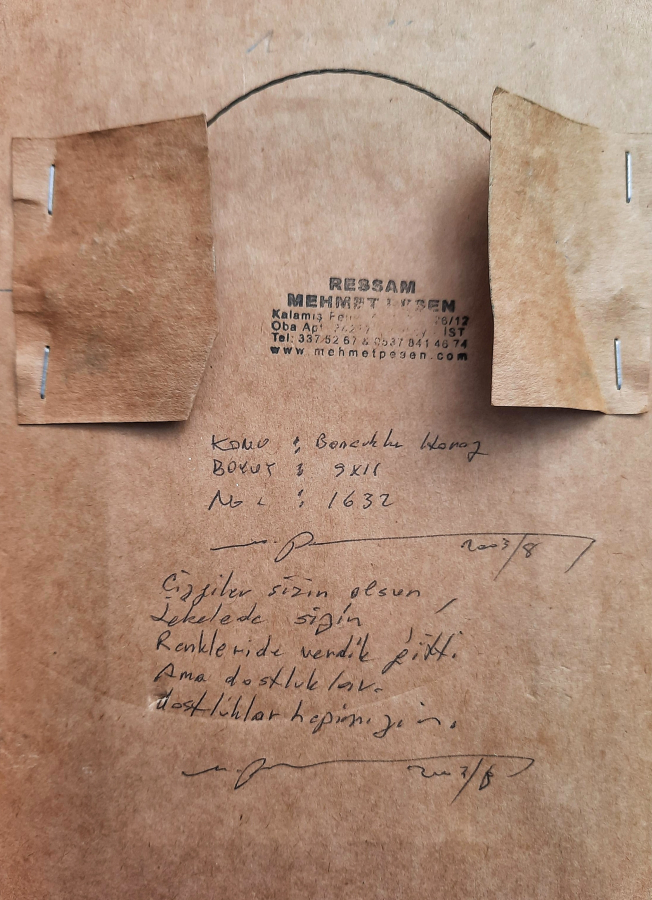 RESSAM
MEHMET PESEN
Kalamış 26/12
Oba Apt. IST
Tel: 337 52 67 & 0537 841 46 74
www.mehmetpesen.com
KONU : Boncuklu Horoz
BOYUT : 9x11
No : 1632
2003/8
Çizgiler sizin olsun,
Lekelede sizin
Renkleride verdik gitti.
Ama dostluklar.
dostluklar hepimizin.